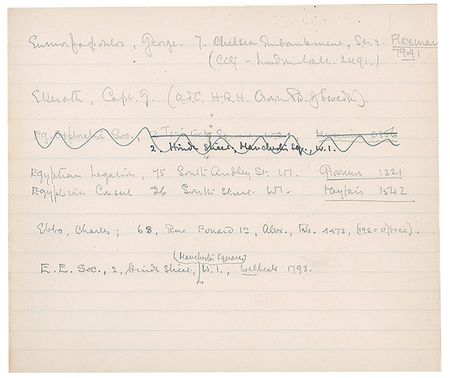 Eumorfopoulos, George. 7. Chelsea Embankment, S.W.3. Flaxman
7941
(City - London Wall. 2491.)
Ekeroth, Capt. G. (A.D.C. H.R.H. Crown Pr. of Sweden).
Soc., 2
2, Hinde Street, Manchester Sq., W.1.
Egyptian Legation, 75 South Audley St. W1. Grosvenor 1221
Egyptian Consul 26 South Street. W1. Mayfair 1542
Ebbo, Charles; 68, Rue Fouad 1er, Alex., Tel. 4472, (1920 Office).
(Manchester Square)
E.E. Soc., 2, Hinde Street, W.1., Welbeck 1793.